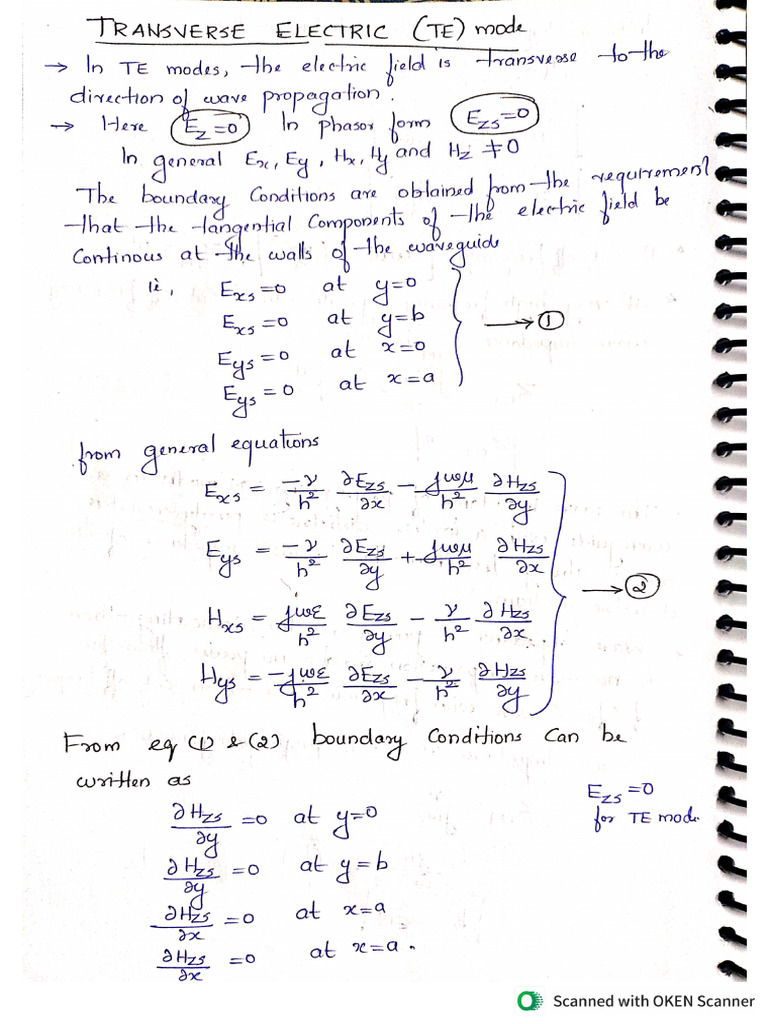 TRANSVERSE ELECTRIC (TE) mode
→ In TE modes, the electric field is transverse to the
direction of wave propagation.
→ Here E_z=0 In phasor form E_zs=0
In general Ex, Ey, Hx, Hy and Hz ≠0
The boundary Conditions are obtained from the requirement
that the tangential Components of the electric field be
Continous at the walls of the waveguide
ie, E_xs=0 at y=0
E_xs=0 at y=b
E_ys=0 at x=0
E_ys=0 at x=a
→ ①
from general equations
E_xs = -γ/h² ∂E_zs/∂x - jωμ/h² ∂H_zs/∂y
E_ys = -γ/h² ∂E_zs/∂y + jωμ/h² ∂H_zs/∂x
H_xs = jωε/h² ∂E_zs/∂y - γ/h² ∂H_zs/∂x
H_ys = -jωε/h² ∂E_zs/∂x - γ/h² ∂H_zs/∂y
→ ②
From eq (1) & (2) boundary Conditions Can be
written as
∂H_zs/∂y =0 at y=0
∂H_zs/∂y =0 at y=b
∂H_zs/∂x =0 at x=a
∂H_zs/∂x =0 at x=a.
E_zs=0
for TE mode.
Scanned with OKEN Scanner